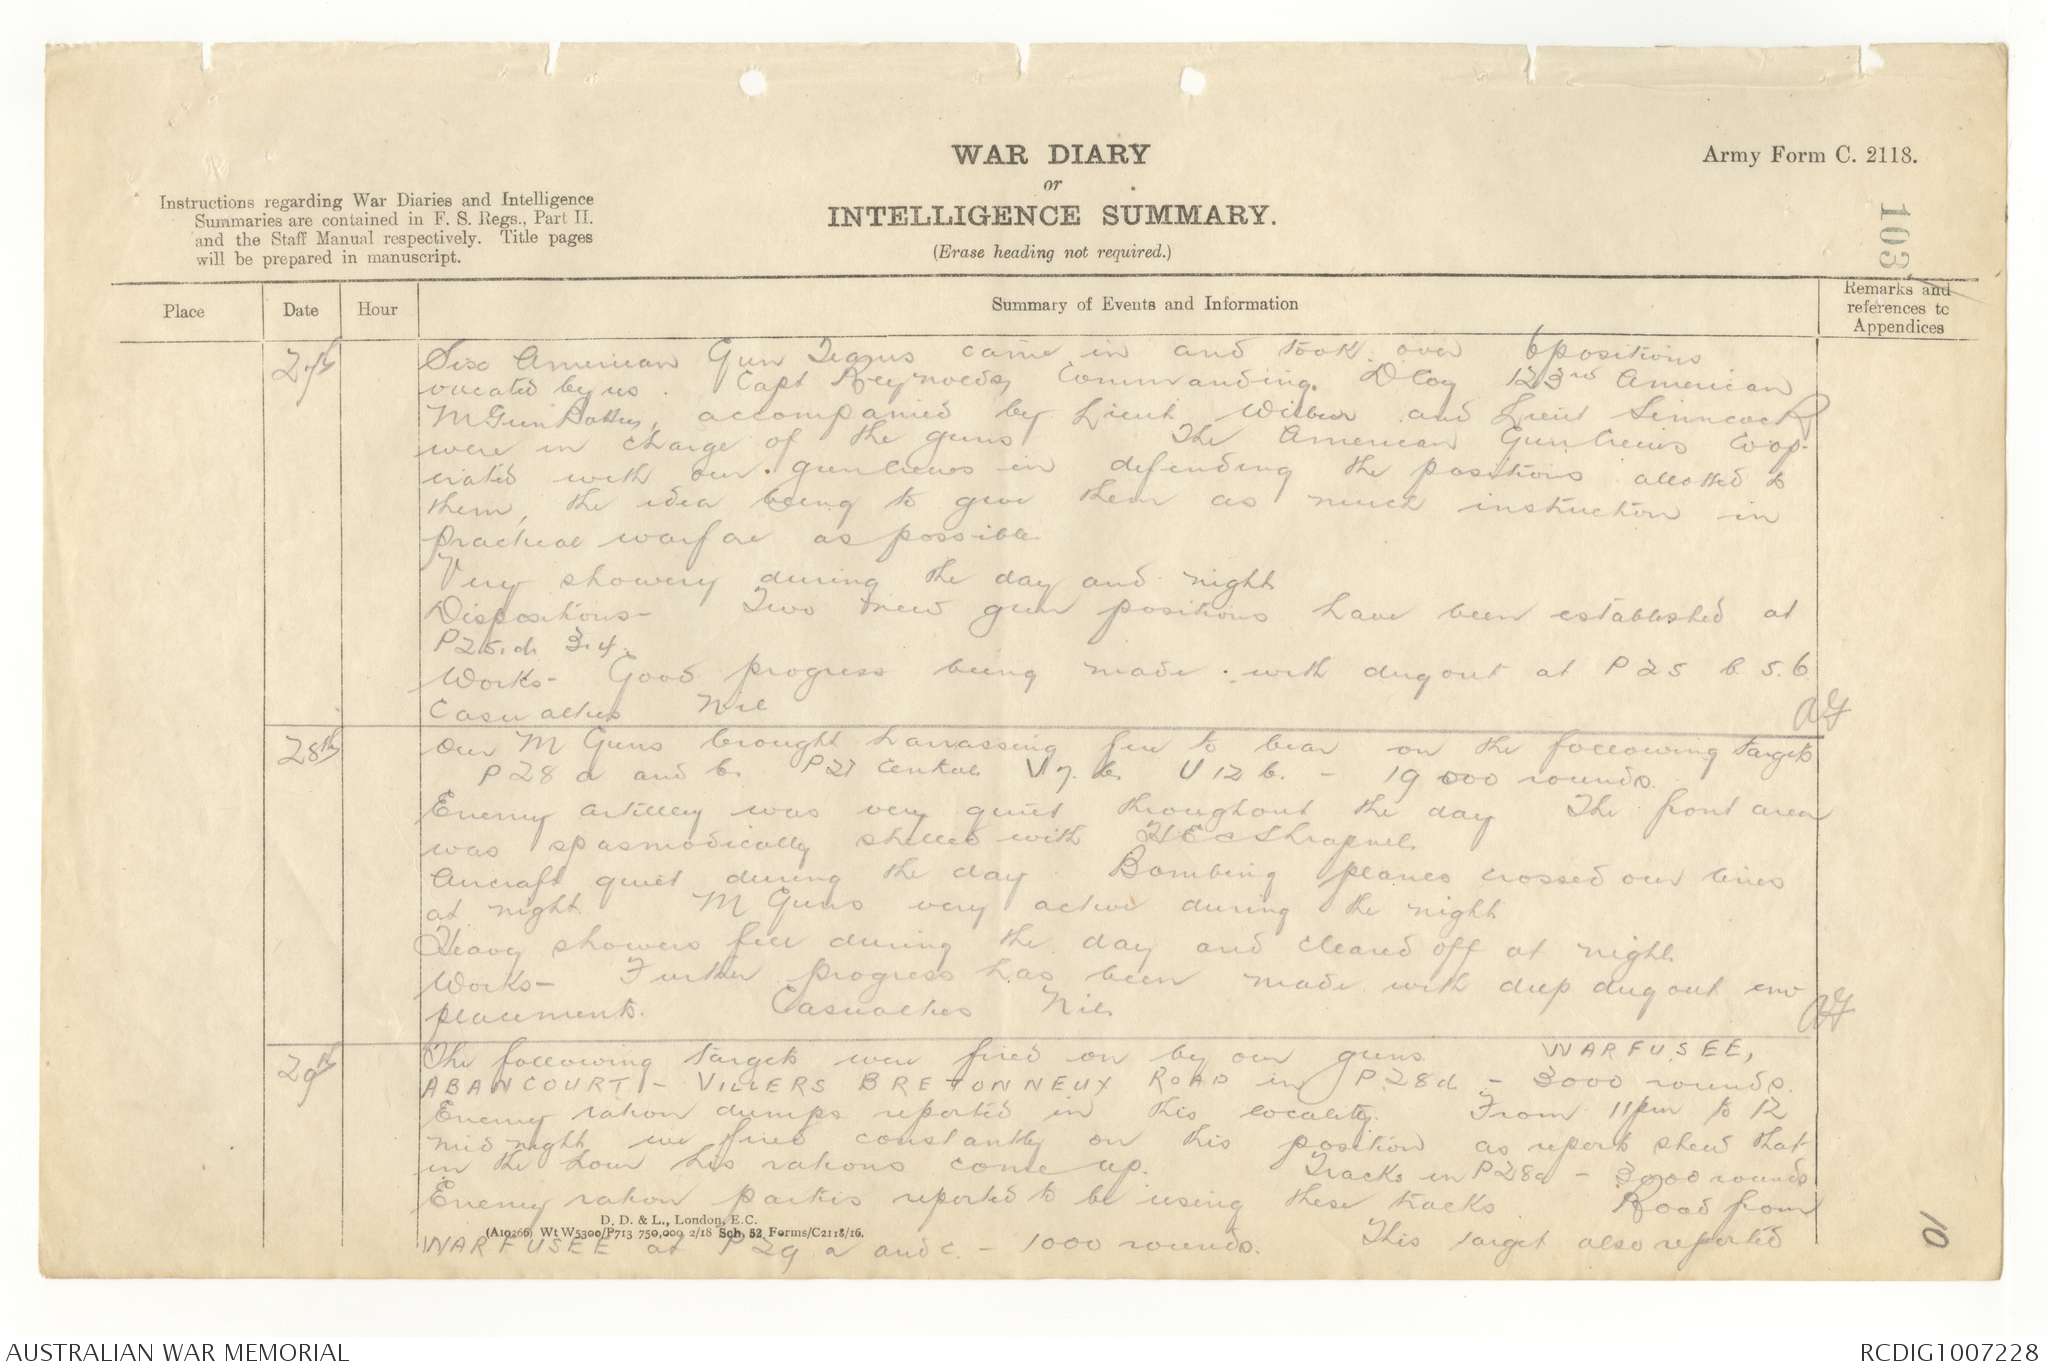 WAR DIARY
or
INTELLIGENCE SUMMARY.
(Erase heading not required.)
Army Form C. 2118.
Instructions regarding War Diaries and Intelligence
Summaries are contained in F. S. Regs., Part II.
and the Staff Manual respectively. Title pages
will be prepared in manuscript.
103
Place
Date
Hour
Summary of Events and Information
Remarks and
references to
Appendices
27th
Six American Gun Teams came in and took over 6 positions
vacated by us. Capt Reynolds, Commanding. D Coy 123rd American
M Gun Battn, accompanied by Lieut Wilbur and Lieut
were in charge of the guns The American Gun Crews Coop-
erated with our gun crews in defending the positions allotted to
them, the idea being to give them as much instruction in
practical warfare as possible
Very showery during the day and night
Dispositions- Two new gun positions have been established at
P25.d. 3.4.
Works- Good progress being made with dugout at P25 b. 5.6
Casualties Nil
28th
Our M Guns brought harrassing fire to bear on the following targets
P28 a and b. P27 central V7.b. U12 b. - 19000 rounds.
Enemy artillery was very quiet throughout the day The front area
was spasmodically shelled with H E & Shrapnel.
Aircraft quiet during the day. Bombing planes crossed our lines
at night M Guns very active during the night
Heavy showers fell during the day and cleared off at night.
Works- Further progress has been made with deep dugout em-
placements. Casualties Nil.
29th
The following targets were fired on by our guns WARFUSEE,
ABANCOURT - VILLERS BRETONNEUX ROAD in P28d - 3000 rounds.
Enemy ration dumps reported in this locality. From 11pm to 12
midnight we fired constantly on this position as reports shew that
in the hour his rations come up. Tracks in P28a - 3000 rounds
Enemy ration parties reported to be using these tracks Road from
D. D. & L., London, E.C.
(A10266) Wt W5300/P713 750,000 2/18 Sch. 52 Forms/C2118/16.
WARFUSEE at P29 a and c. - 1000 rounds. This target also reported
10
AUSTRALIAN WAR MEMORIAL
RCDIG1007228